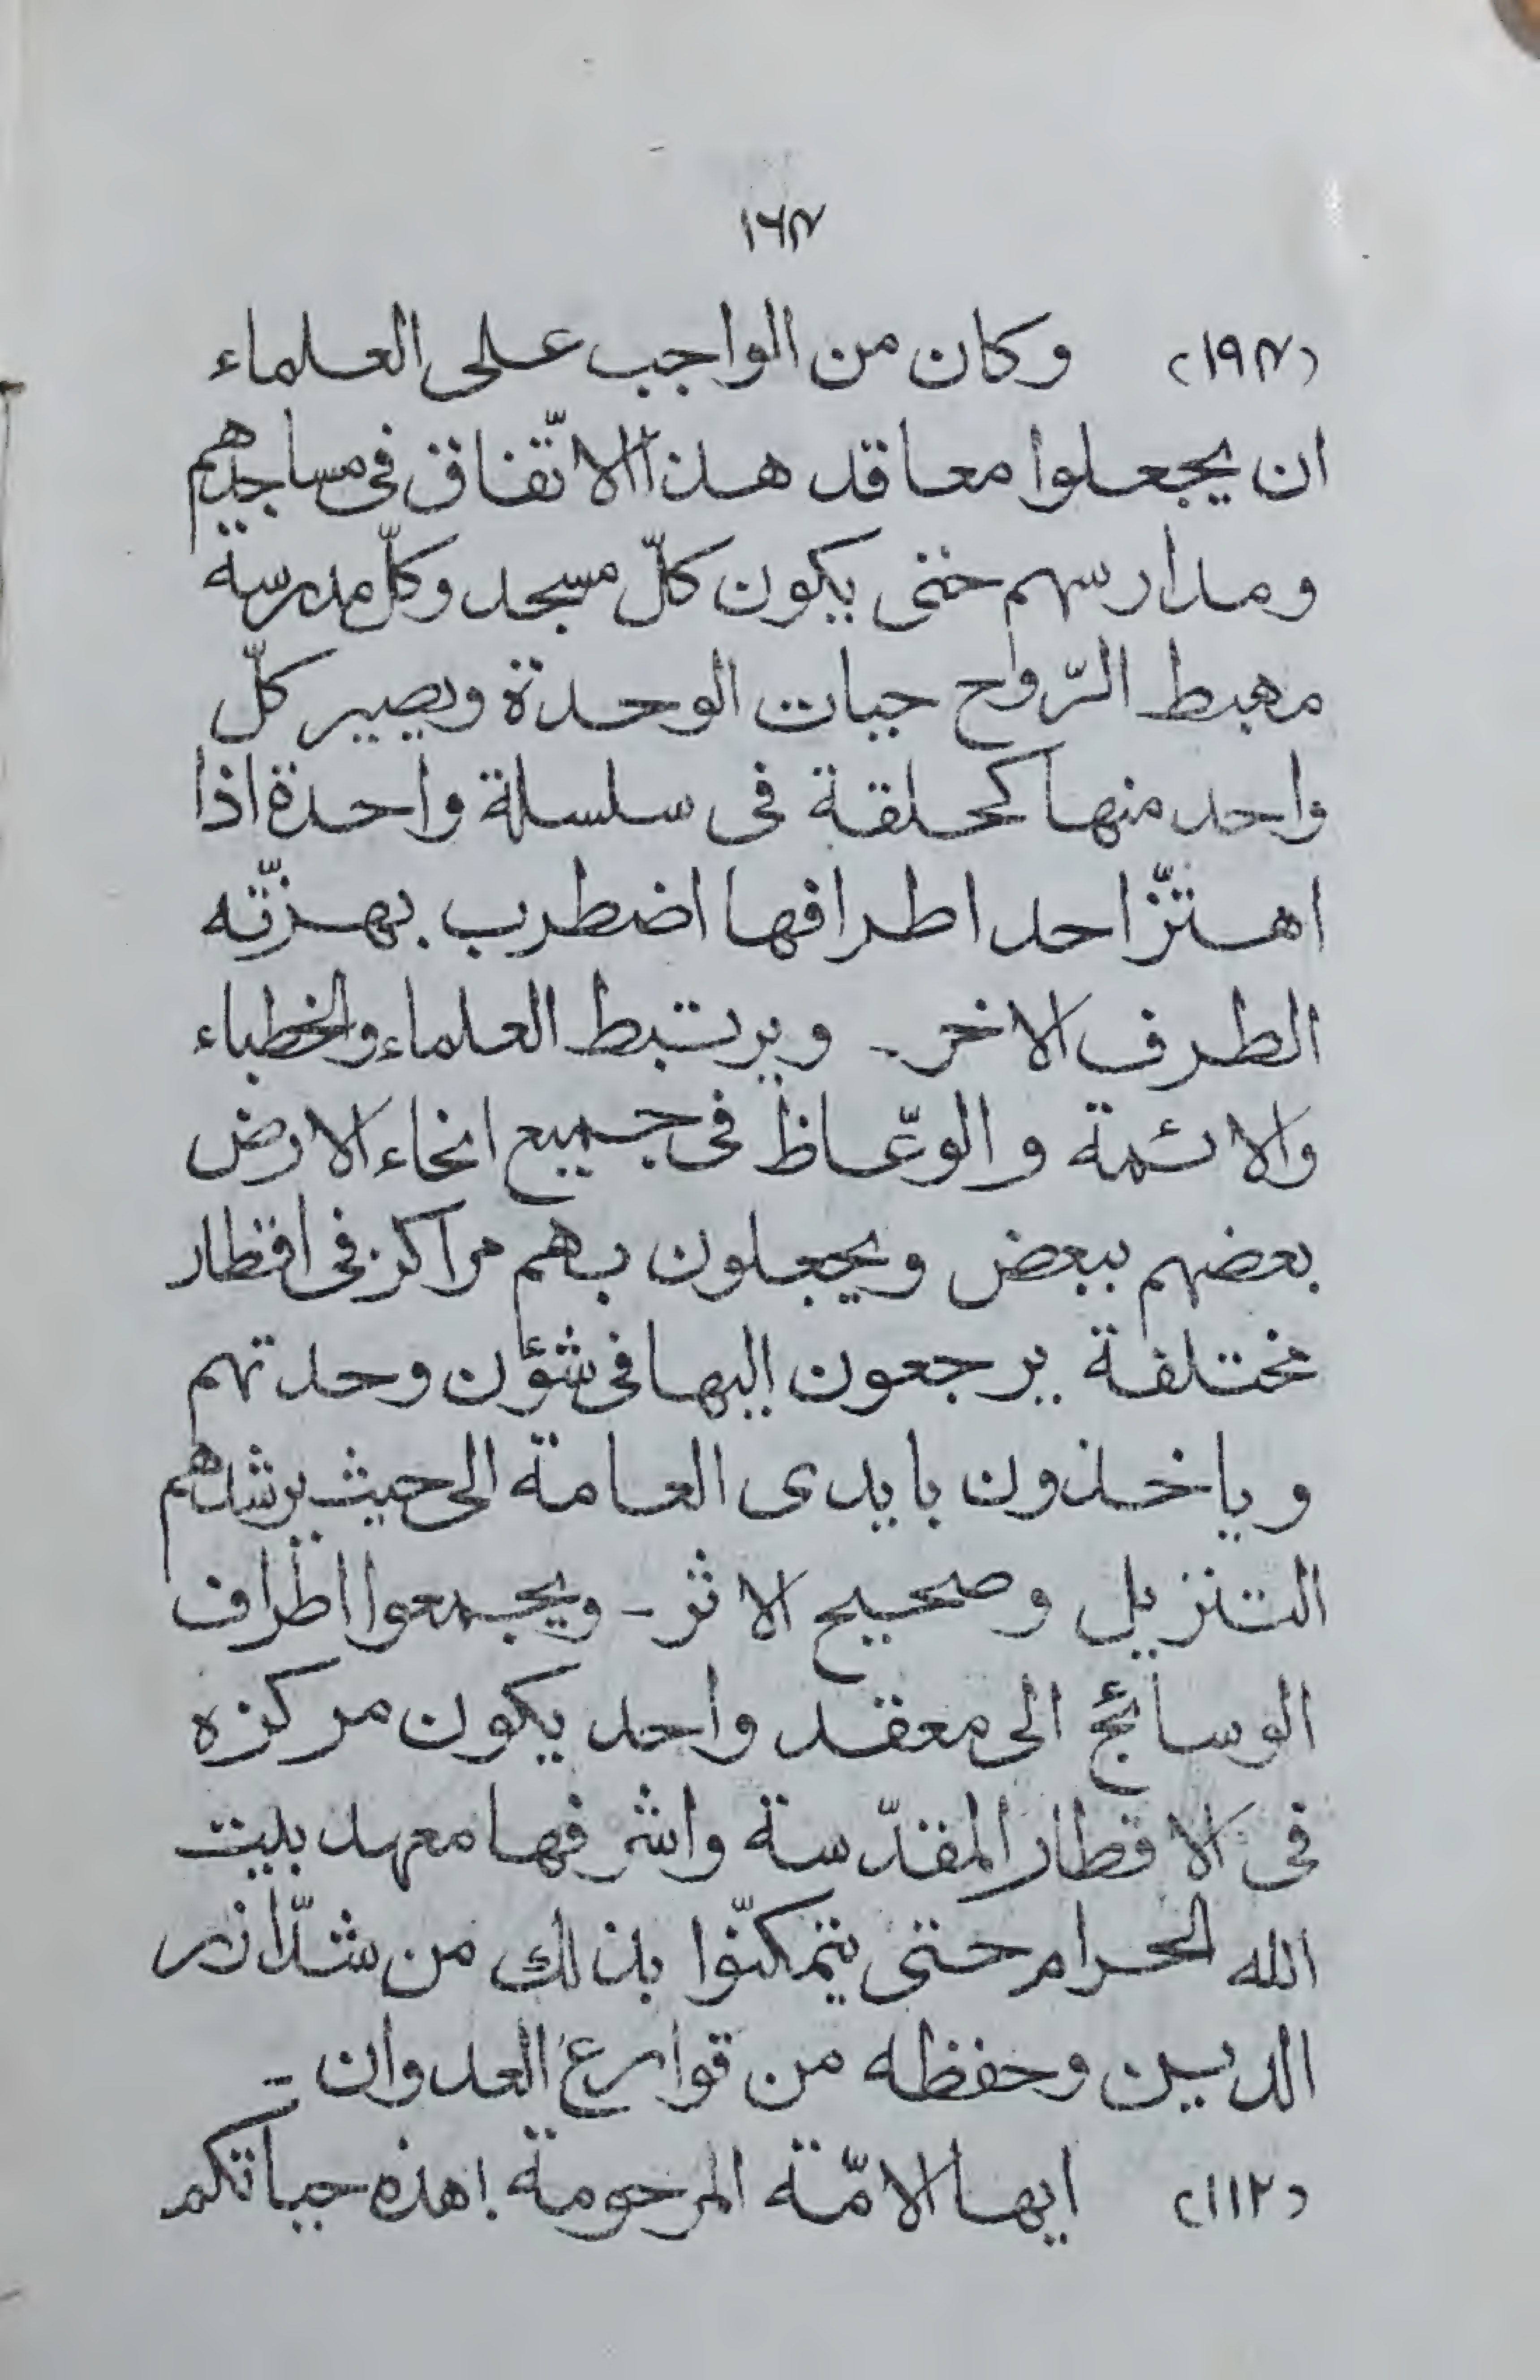 ١٦٨
(١٩٨) وكان من الواجب على العلماء
ان يجعلوا معاقد هذا الاتّفاق فى مساجدهم
ومدارسهم حتى يكون كلّ مسجد وكلّ مدرسة
مهبط الرّوح حيات الوحدة ويصير كلّ
واحد منها كحلقة فى سلسلة واحدة اذا
اهتزّ احد اطرافها اضطرب بهزّته
الطرف الاخر۔ ويرتبط العلماء والخطباء
والائمة والوعّاظ فى جميع انحاء الارض
بعضهم ببعض ويجعلون بهم مراكز فى اقطار
مختلفة يرجعون اليها فى شؤن وحدتهم
وياخذون بايدى العامة الى حيث يرشدهم
التنزيل وصحيح الاثر۔ ويجمعوا اطراف
الوسائج الى معقد واحد يكون مركزه
فى الاقطار المقدّسة واشرفها معهد بيت
الله الحرام حتى يتمكنّوا بذلك من شدّ ازر
الدين وحفظه من قوارع العدوان۔
(١١٢) ايها الامّة المرحومة! هذه حياتكم